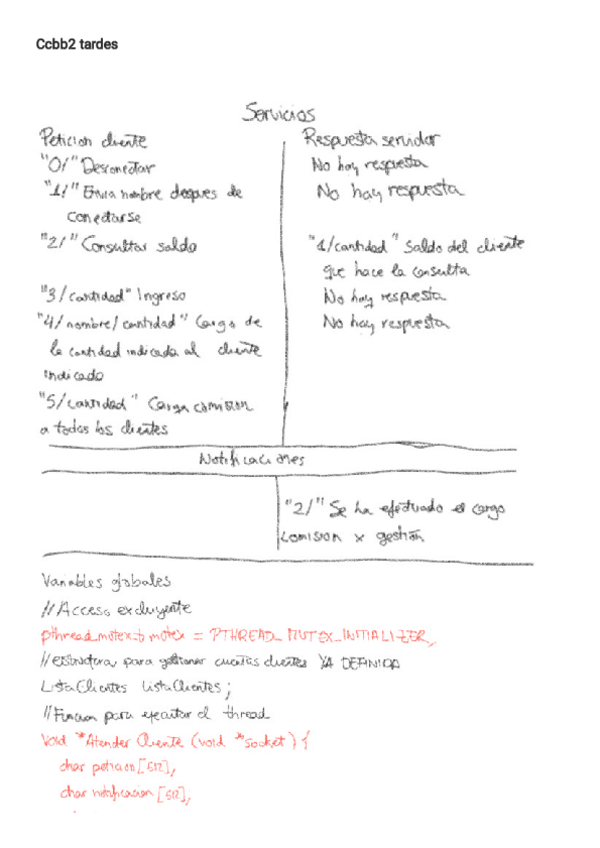 Ccbb2 tardes
Servicios
Peticion cliente
"0/" Desconectar
"1/" Envia nombre despues de
conectarse
"2/" Consultar saldo
"3/cantidad" Ingreso
"4/nombre/cantidad" Cargo de
la cantidad indicada al cliente
indicado
"5/cantidad" Carga comision
a todos los clientes
Respuesta servidor
No hay respuesta
No hay respuesta
"1/cantidad" Saldo del cliente
que hace la consulta
No hay respuesta
No hay respuesta
Notificaciones
"2/" Se ha efectuado el cargo
comision x gestión
Variables globales
//Acceso excluyente
pthread_mutex_t mutex = PTHREAD_MUTEX_INITIALIZER;
//estructura para gestionar cuentas clientes YA DEFINIDA
ListaClientes listaClientes;
//Funcion para ejecutar el thread
Void *Atender Cliente (void *socket) {
char peticion[512],
char notificacion[512],